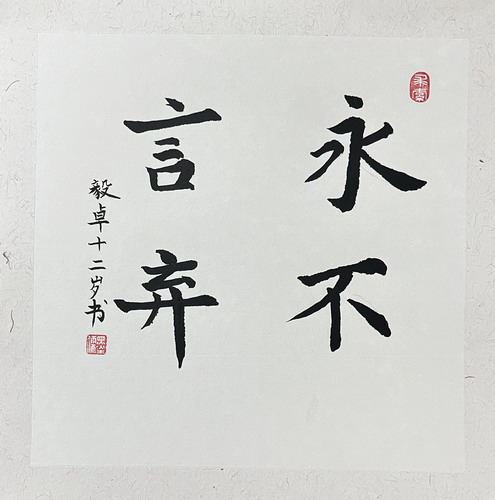 永不
言弃
毅卓十二岁书